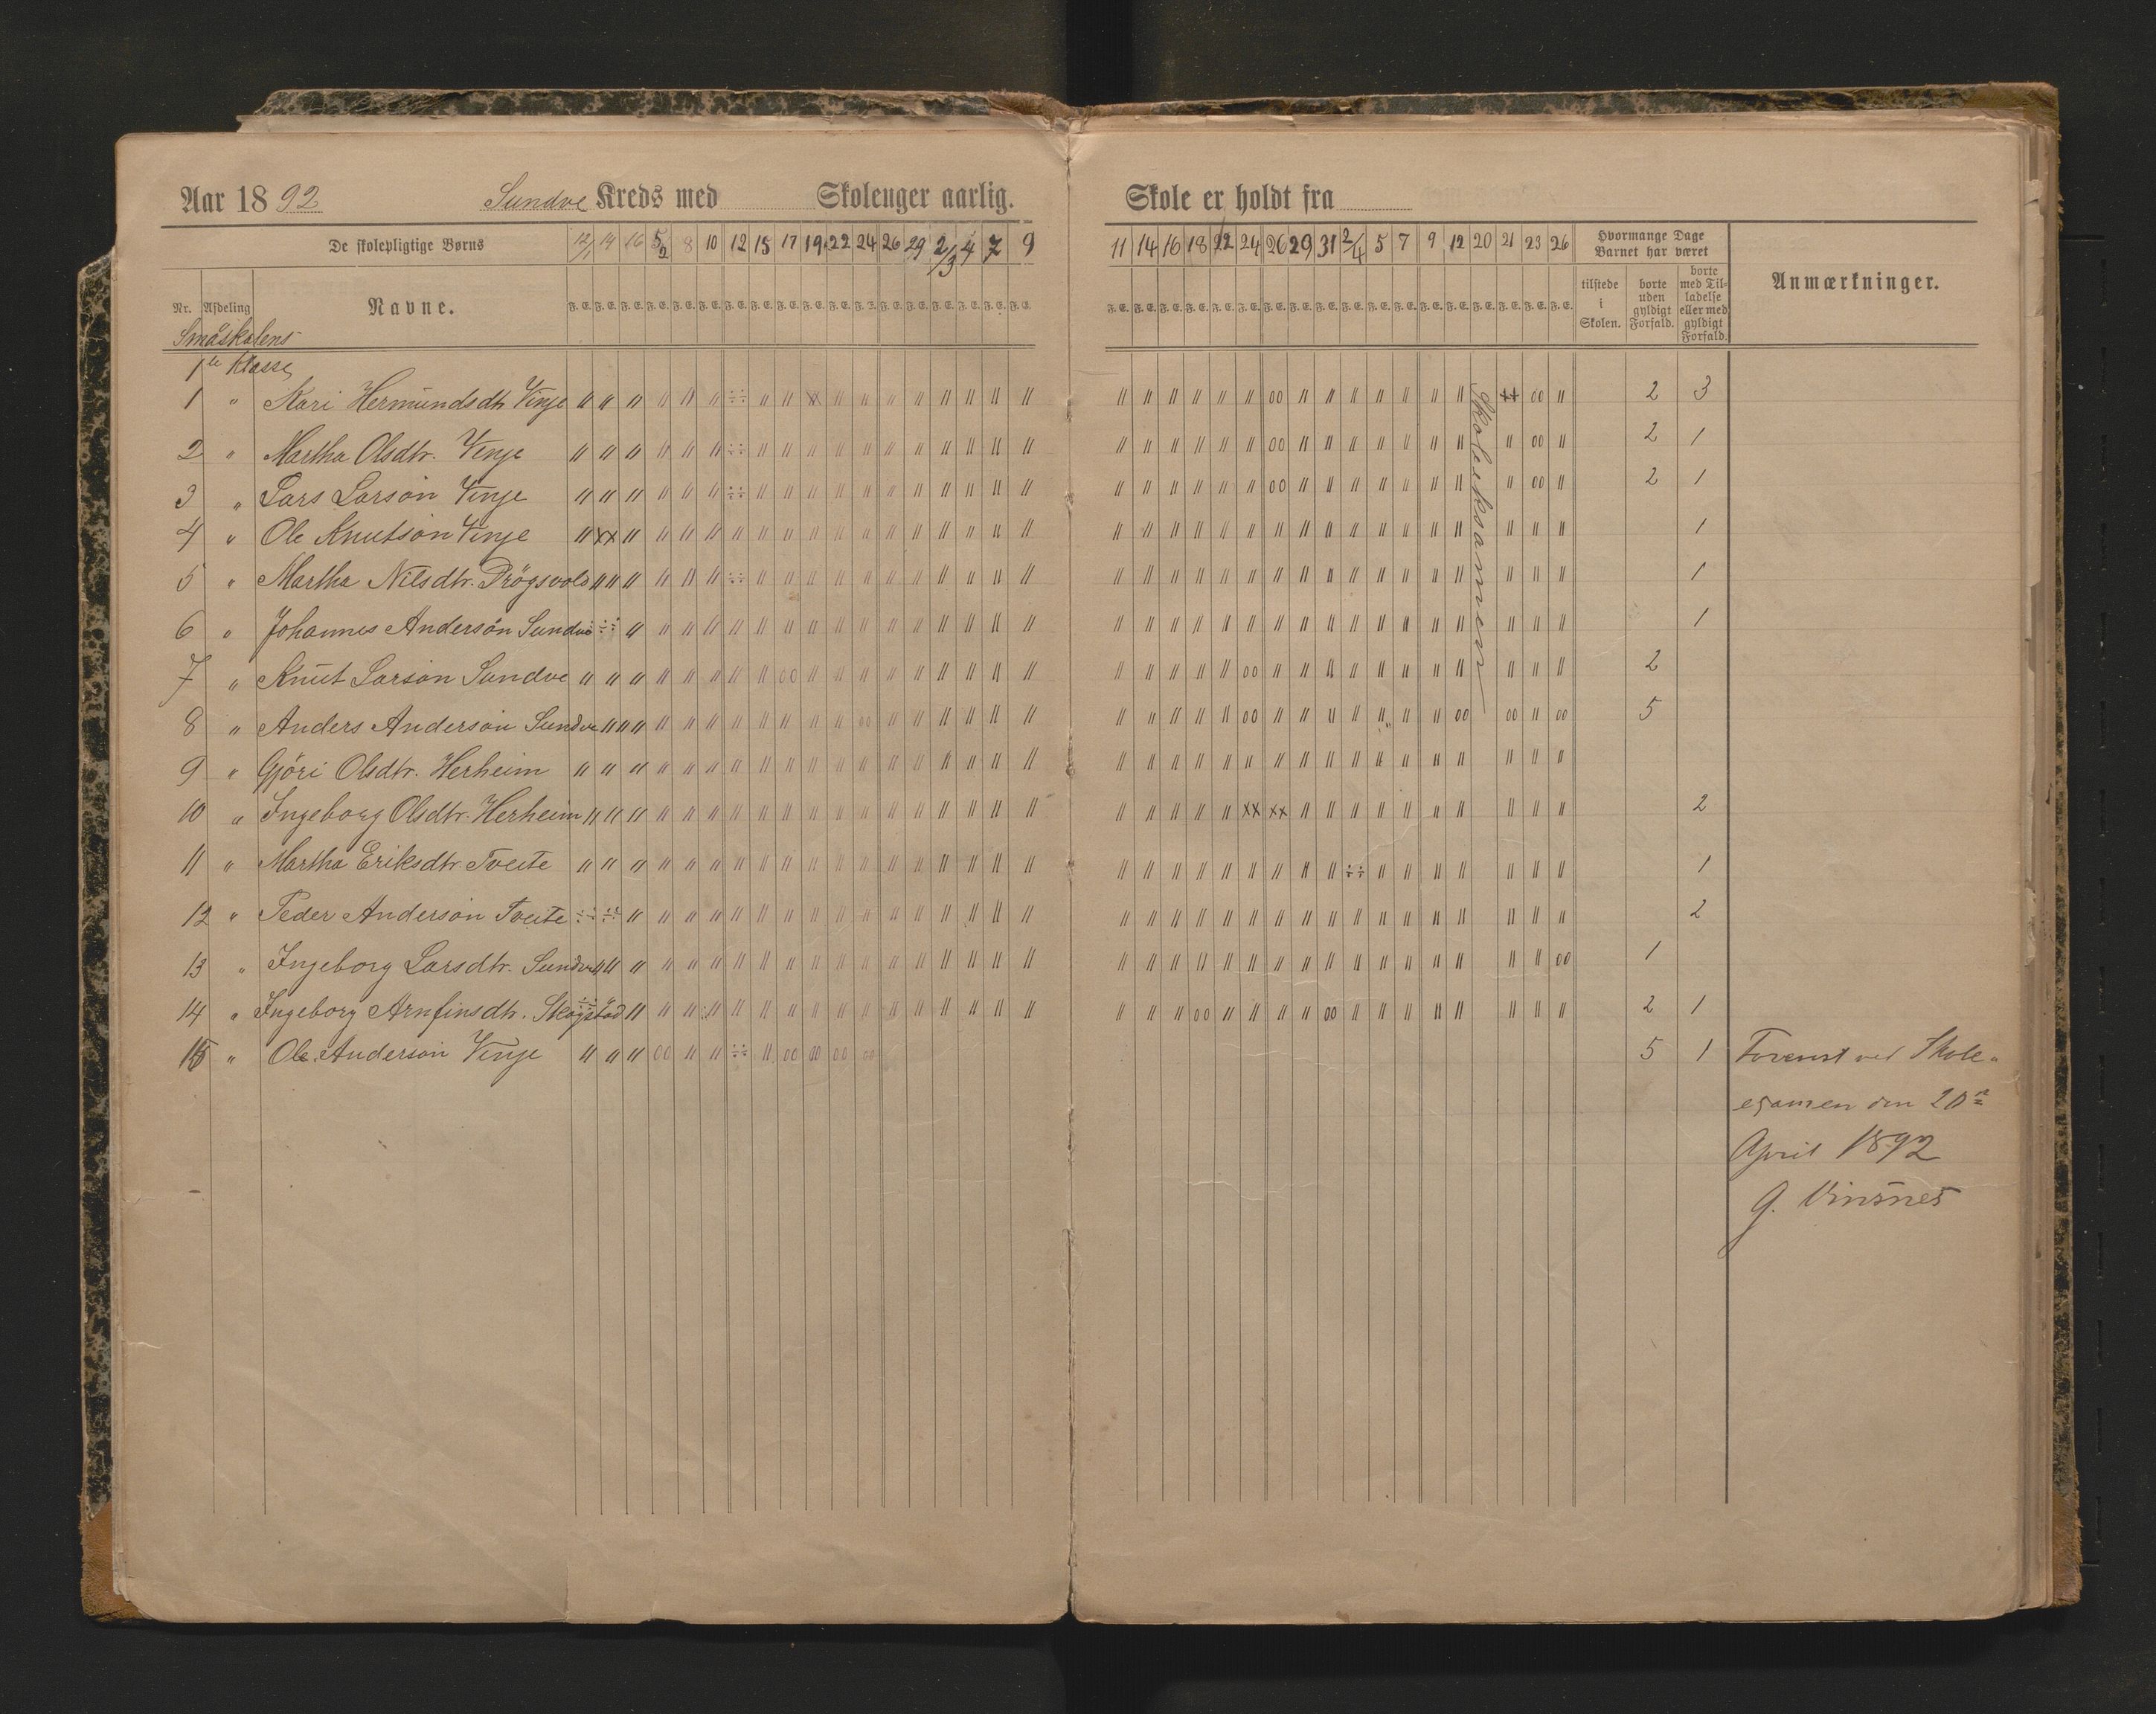 Aar 1892 Sundve Kreds med Skoleuger aarlig.
De skolepligtige Børns 12/1 14 16 5/2 8 10 12 15 17 19 22 24 26 29 2/3 4 7 9
Nr. Afdeling Navne. F. E. F. E. F. E. F. E. F. E. F. E. F. E. F. E. F. E. F. E. F. E. F. E. F. E. F. E. F. E. F. E. F. E. F. E.
Småskolens
1ste Klasse
1 " Kari Hermundsdtr Vinje
2 " Martha Olsdtr. Vinje
3 " Lars Larson Vinje
4 " Ole Knutson Vinje
5 " Martha Nilsdtr.
6 " Johannes Anderson Sundve
7 " Knut Larson Sundve
8 " Anders Anderson Sundve
9 " Gjöri Olsdtr. Herheim
10 " Ingeborg Olsdtr. Herheim
11 " Martha Eriksdtr Tveite
12 " Peder Anderson Tveite
13 " Ingeborg Larsdtr. Sundve
14 " Ingeborg Arnfinsdtr. Skógstad
15 " Ole Anderson Vinje
Skole er holdt fra
11 14 16 18 22 24 26 29 31 2/4 5 7 9 12 20 21 23 26 Hvormange Dage
Barnet har været
Anmærkninger.
F. E. F. E. F. E. F. E. F. E. F. E. F. E. F. E. F. E. F. E. F. E. F. E. F. E. F. E. F. E. F. E. F. E. F. E.
tilstede
i
Skolen.
borte
uden
gyldigt
Forfald.
borte
med Til-
ladelse
eller med
gyldigt
Forfald.
Skoleeksamen
2 3
2 1
2 1
1
1
1
2
5
2
1
2
1
2 1
5 1 Forevist ved Skole-
examen den 20de
April 1892
G. Vinsnes